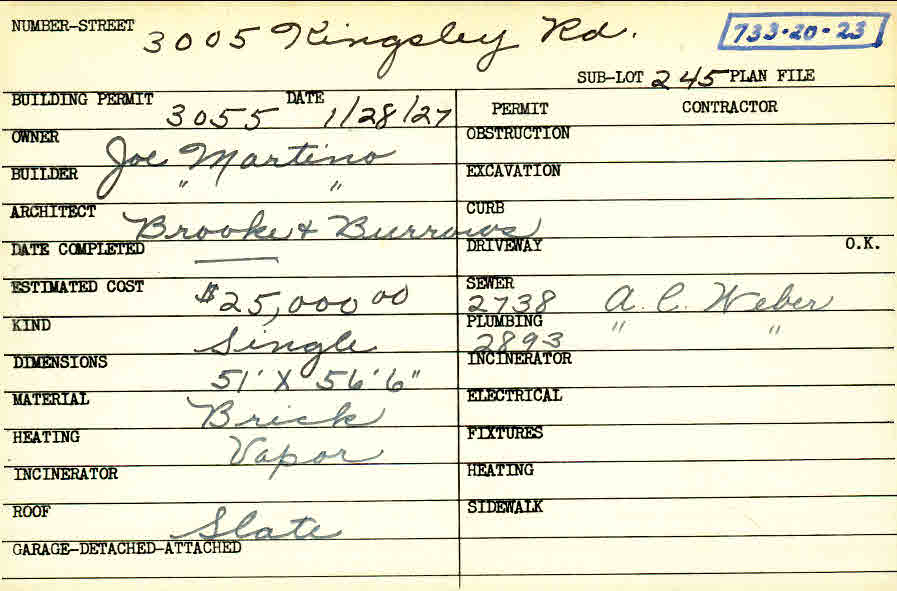 NUMBER-STREET 3005 Kingsley Rd. 733-20-23
SUB-LOT 245 PLAN FILE
BUILDING PERMIT 3055 DATE 1/28/27
OWNER Joe Martino
BUILDER " "
ARCHITECT Brooke & Burrows
DATE COMPLETED —
ESTIMATED COST $25,000 00
KIND Single
DIMENSIONS 51' X 56'6"
MATERIAL Brick
HEATING Vapor
INCINERATOR
ROOF Slate
GARAGE-DETACHED-ATTACHED
PERMIT CONTRACTOR
OBSTRUCTION
EXCAVATION
CURB
DRIVEWAY O.K.
SEWER 2738 A. C. Weber
PLUMBING 2893 " "
INCINERATOR
ELECTRICAL
FIXTURES
HEATING
SIDEWALK